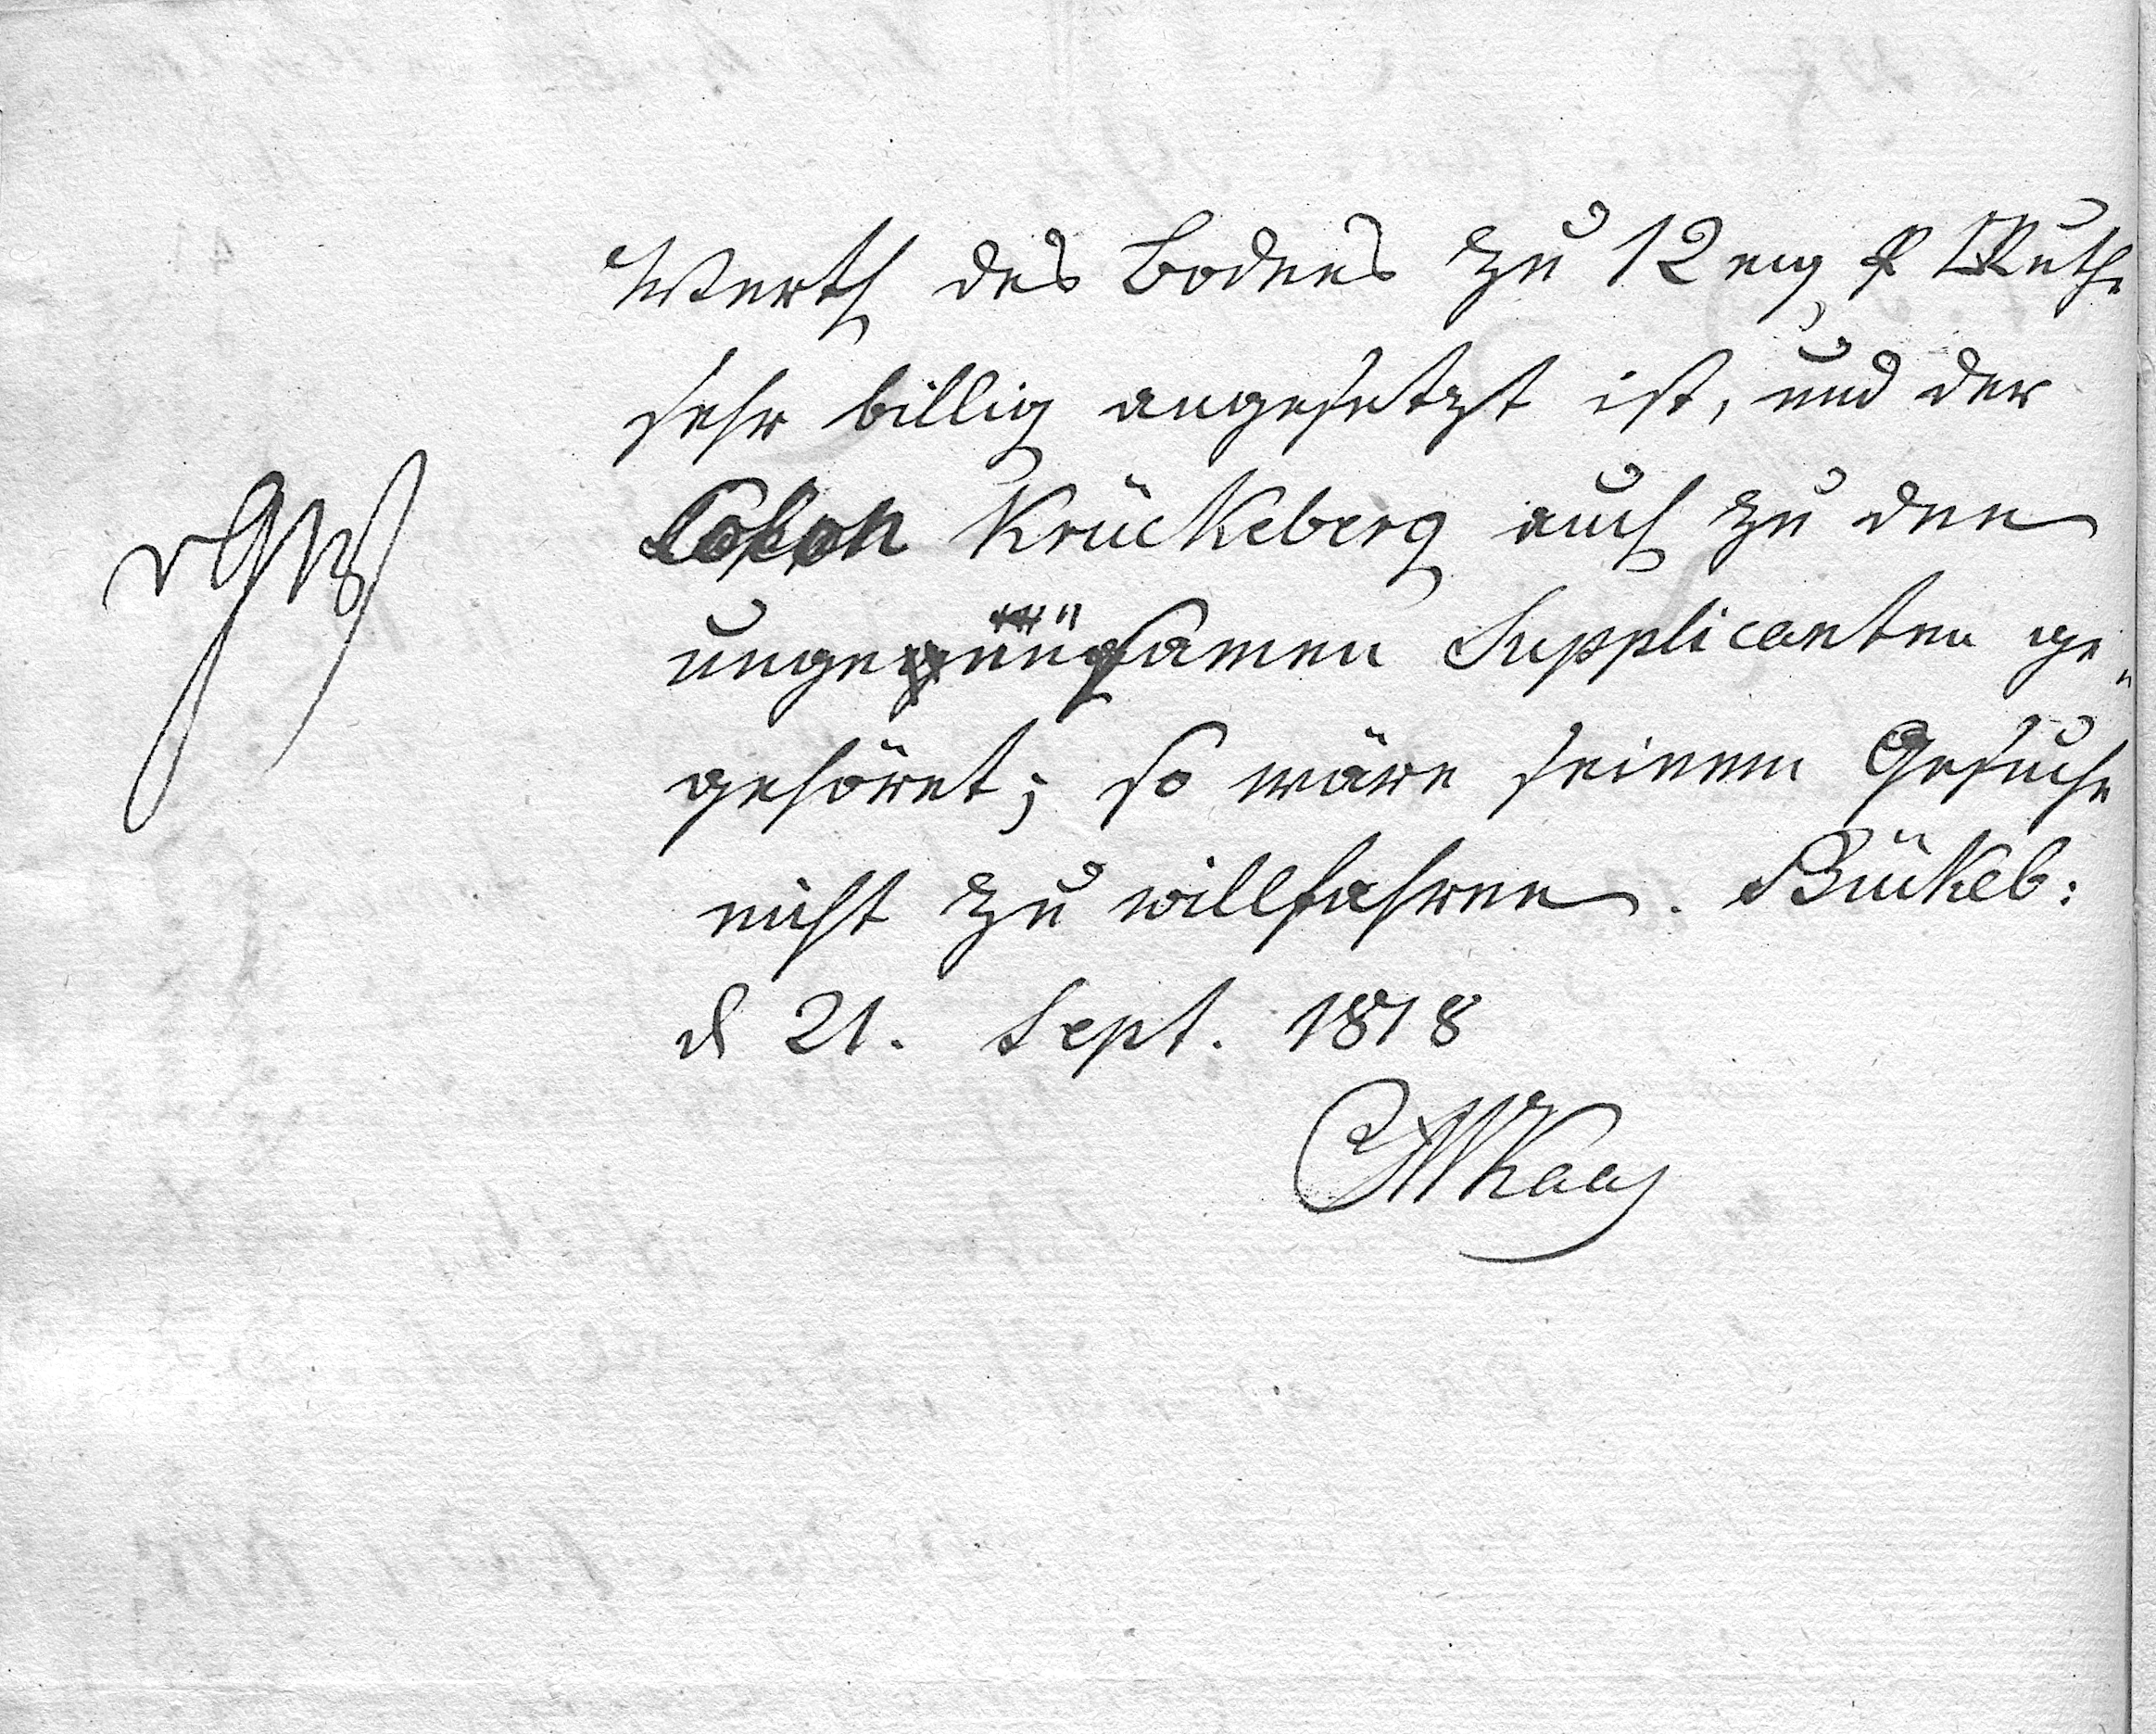 Werth des Bodens zu 12 mg p □Ruthe
sehr billig angesetzt ist, und der
Colon Krückeberg auch zu den
ungenügsamen Supplicanten ge„
gehöret; so wäre seinem Gesuche
nicht zu willfahren. Bückeb:
d 21. Sept. 1818